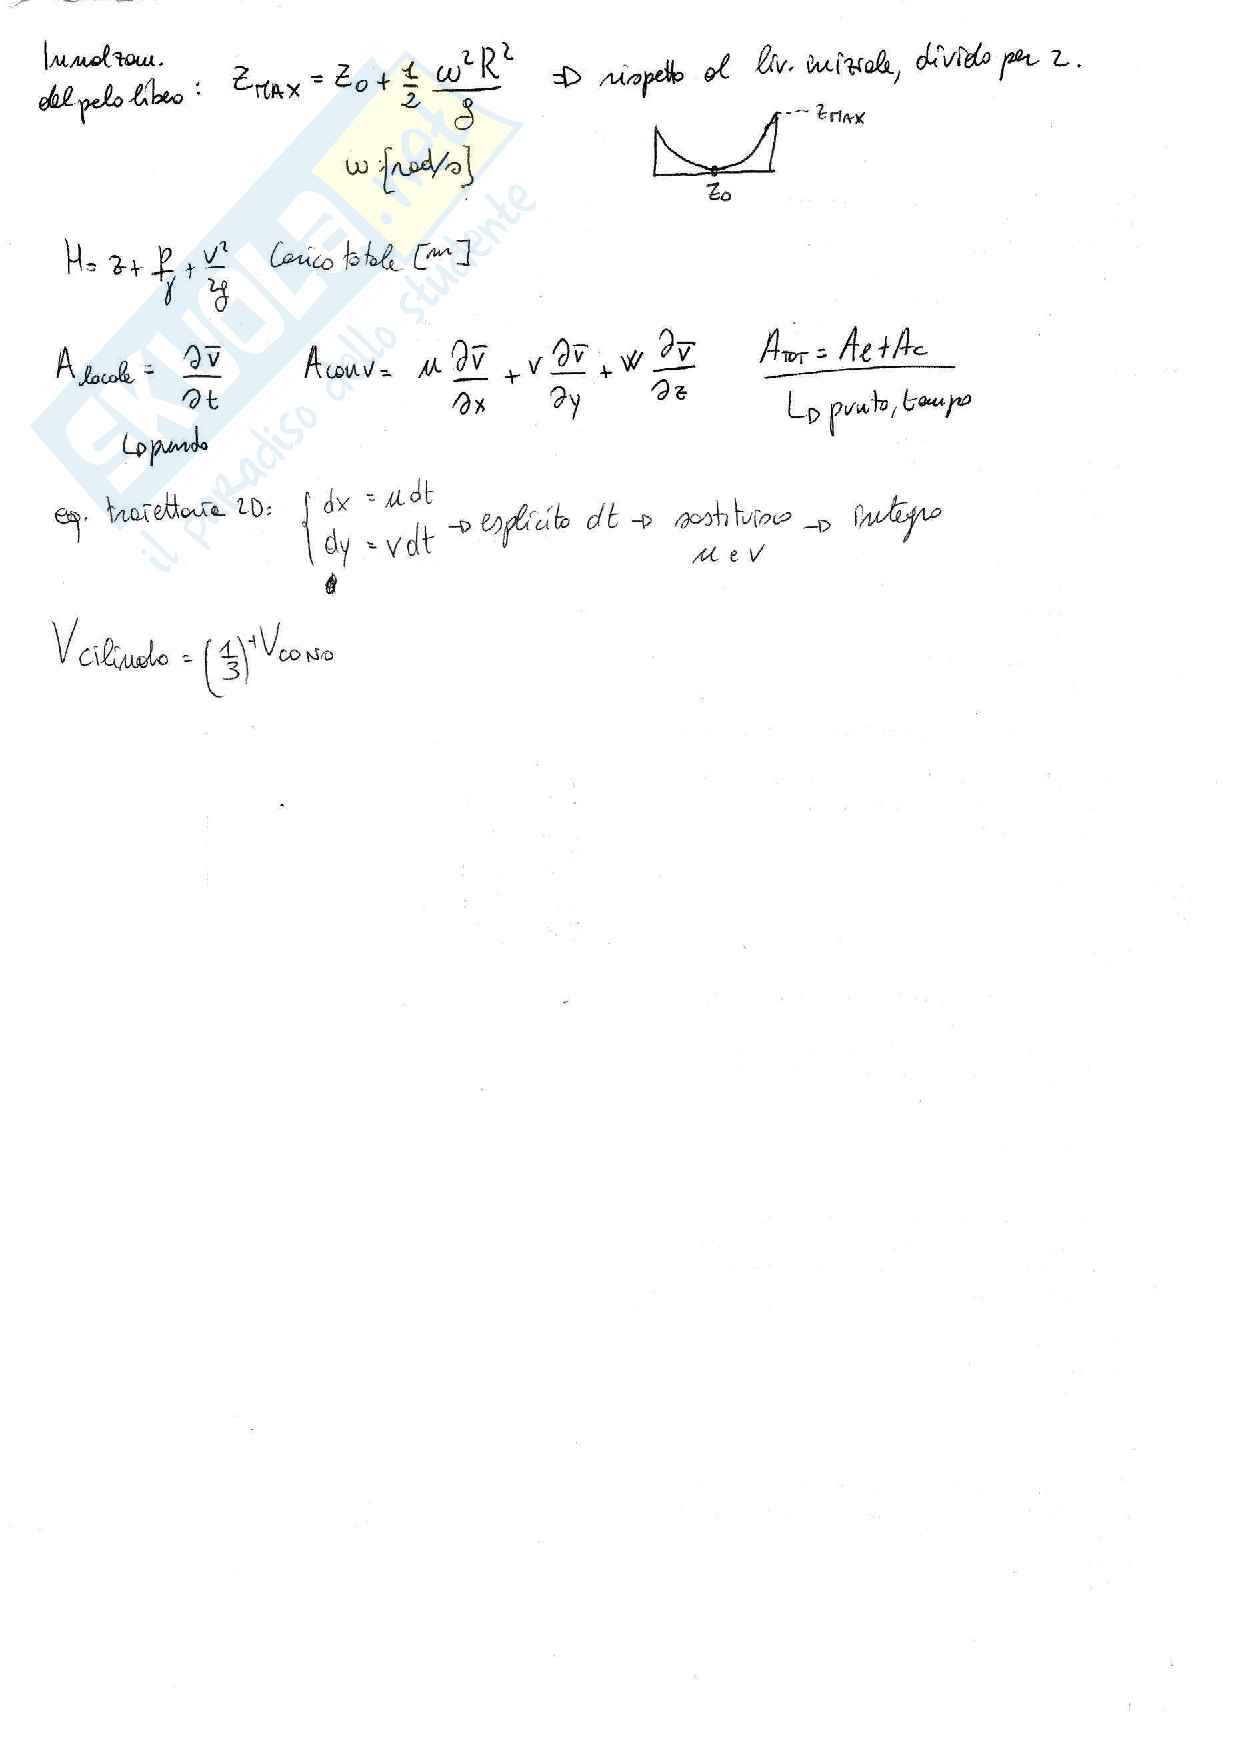 Innalzam.
del pelo libero : Z_MAX = Z_0 + 1/2 ω²R²/g ⇒ rispetto al liv. iniziale, divido per 2.
ω [rad/s]
Z_MAX
Z_0
H = z + p/γ + v²/2g Carico totale [m]
A_locale = ∂v̄/∂t A_conv = u ∂v̄/∂x + v ∂v̄/∂y + w ∂v̄/∂z A_TOT = Aℓ + Ac
↳ punto, tempo
eq. traiettorie 2D: { dx = u dt
dy = v dt → esplicito dt → sostituisco → integro
u e v
V cilindro = (1/3)⁻¹ V CONO
SKUOLA.net
il paradiso dello studente